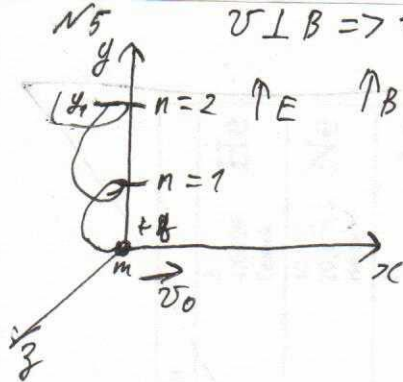 N5 v ⊥ B =>
y
y₁ n = 2 ↑E ↑B
n = 1
+q
m v₀ x
z